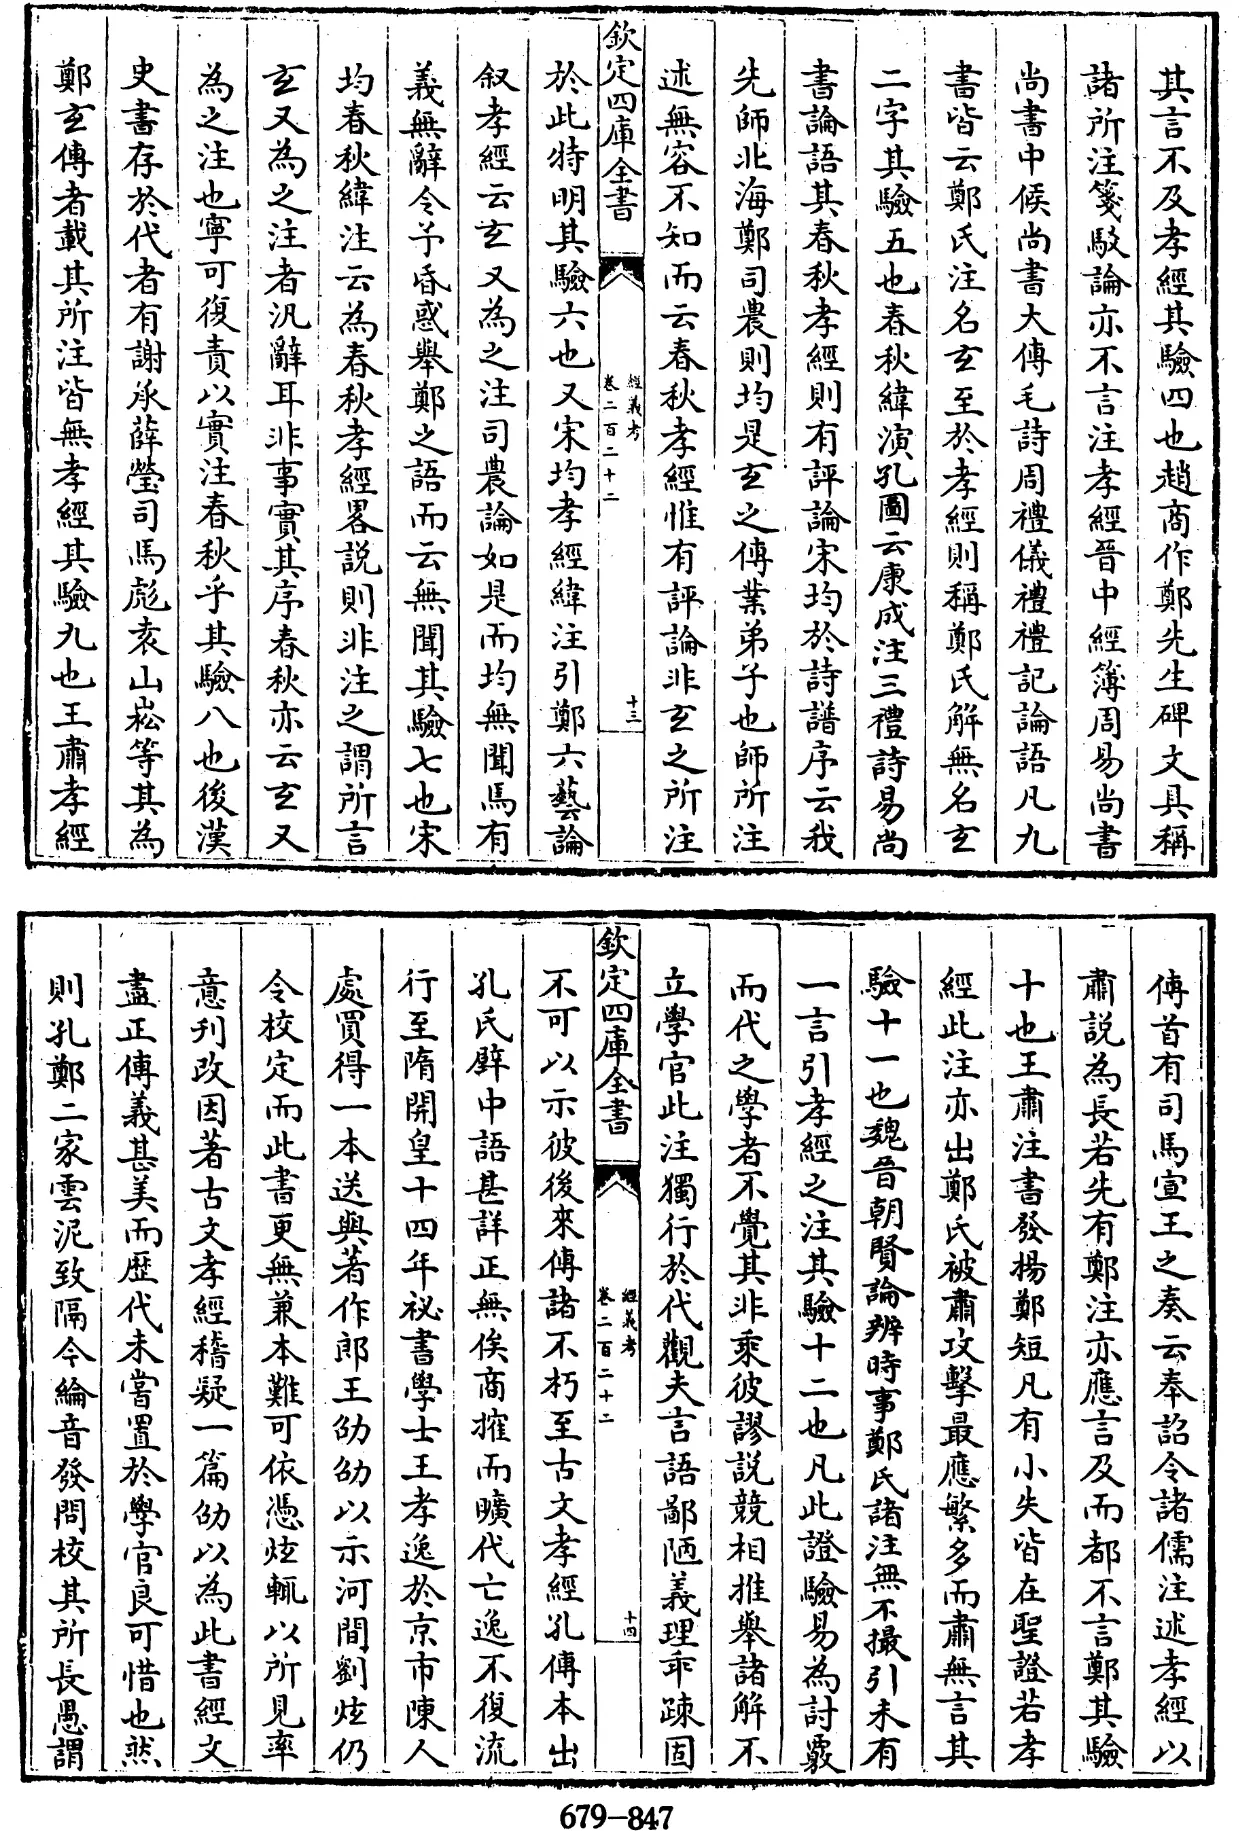 其言不及孝經其驗四也趙商作鄭先生碑文具稱
諸所注箋駁論亦不言注孝經晉中經簿周易尚書
尚書中候尚書大傳毛詩周禮儀禮禮記論語凡九
書皆云鄭氏注名玄至於孝經則稱鄭氏解無名玄
二字其驗五也春秋緯演孔圖云康成注三禮詩易尚
書論語其春秋孝經則有評論宋均於詩譜序云我
先師北海鄭司農則均是玄之傳業弟子也師所注
述無容不知而云春秋孝經惟有評論非玄之所注
欽定四庫全書
經義考
卷二百二十二
十三
於此特明其驗六也又宋均孝經緯注引鄭六藝論
叙孝經云玄又為之注司農論如是而均無聞焉有
義無辭令予昏惑舉鄭之語而云無聞其驗七也宋
均春秋緯注云為春秋孝經畧說則非注之謂所言
玄又為之注者汎辭耳非事實其序春秋亦云玄又
為之注也寧可復責以實注春秋乎其驗八也後漢
史書存於代者有謝承薛瑩司馬彪袁山崧等其為
鄭玄傳者載其所注皆無孝經其驗九也王肅孝經
傳首有司馬宣王之奏云奉詔令諸儒注述孝經以
肅說為長若先有鄭注亦應言及而都不言鄭其驗
十也王肅注書發揚鄭短凡有小失皆在聖證若孝
經此注亦出鄭氏被肅攻擊最應繁多而肅無言其
驗十一也魏晉朝賢論辨時事鄭氏諸注無不撮引未有
一言引孝經之注其驗十二也凡此證驗易為討覈
而代之學者不覺其非乘彼謬說競相推舉諸解不
立學官此注獨行於代觀夫言語鄙陋義理乖疎固
欽定四庫全書
經義考
卷二百二十二
十四
不可以示彼後來傳諸不朽至古文孝經孔傳本出
孔氏壁中語甚詳正無俟商搉而曠代亡逸不復流
行至隋開皇十四年祕書學士王孝逸於京市陳人
處買得一本送與著作郎王劭劭以示河間劉炫仍
令校定而此書更無兼本難可依憑炫輒以所見率
意刋改因著古文孝經稽疑一篇劭以為此書經文
盡正傳義甚美而歷代未嘗置於學官良可惜也然
則孔鄭二家雲泥致隔今綸音發問校其所長愚謂
679-847